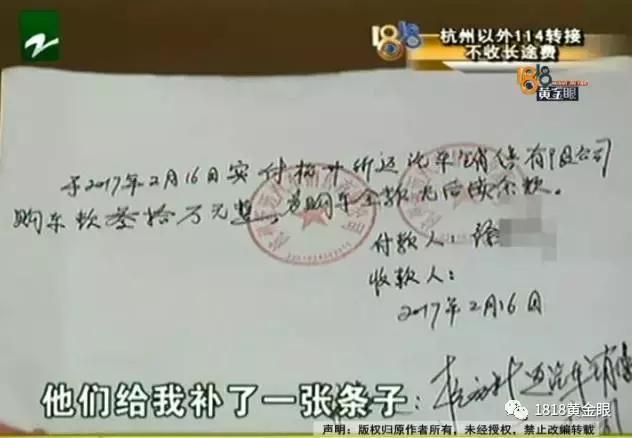 1818
杭州以外114转接
不收长途费
1818
黄金眼
于2017年2月16日实付杭州新远汽车销售有限公司
购车款叁拾万元整,为购车全款无后续余款。
付款人:
收款人:
2017年2月16日
汽车销售
他们给我补了一张条子:
1818黄金眼
声明:版权归原作者所有,未经授权,禁止改编转载